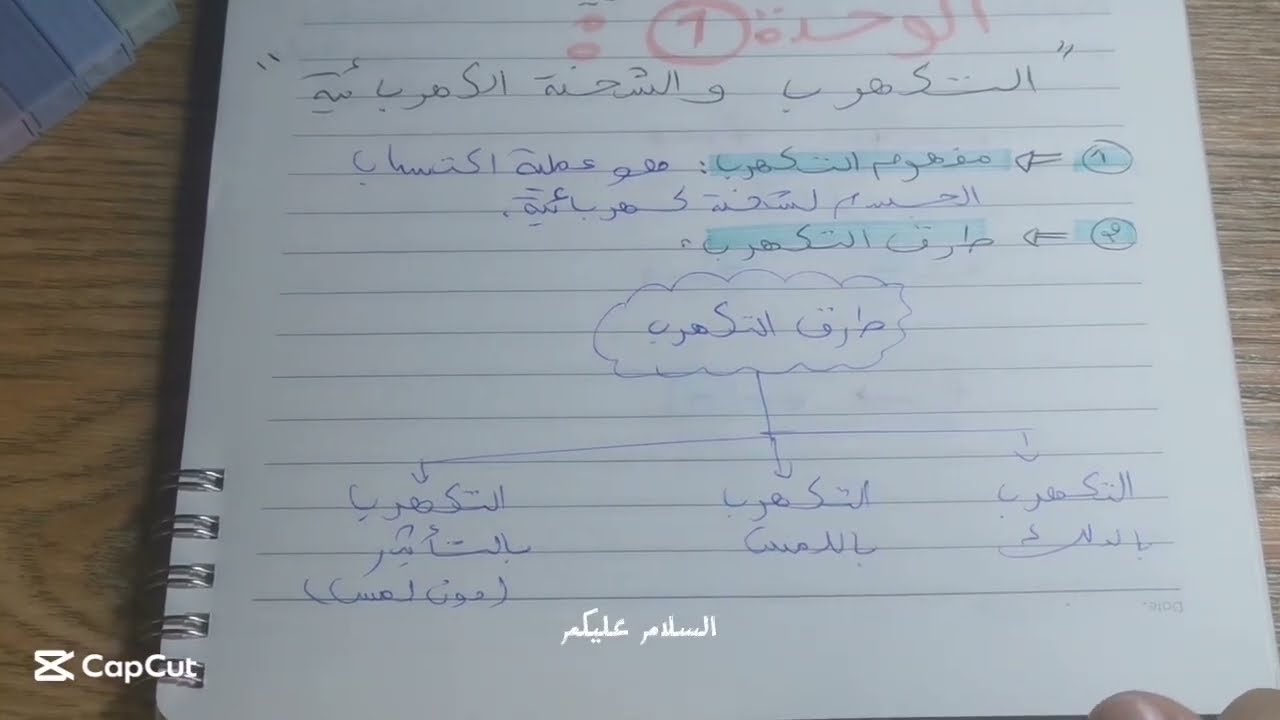 الوحدة ①:
"التكهرب والشحنة الكهربائية"
① ⇐ مفهوم التكهرب: هو عملية اكتساب
الجسم لشحنة كهربائية.
② ⇐ طرق التكهرب:
طرق التكهرب
التكهرب بالدلك
التكهرب باللمس
التكهرب بالتأثير (دون لمس)
Date.
السلام عليكم
CapCut